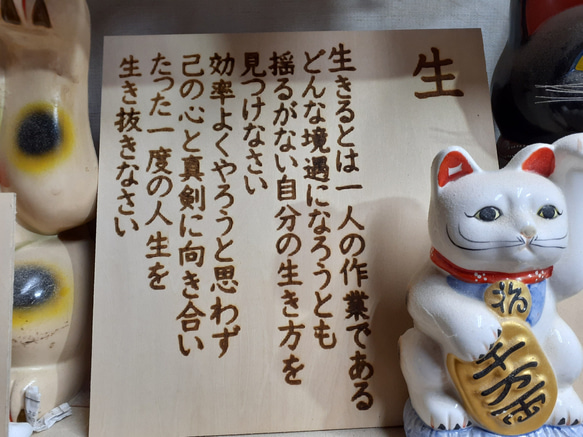 生
生きるとは一人の作業である
どんな境遇になろうとも
揺るがない自分の生き方を
見つけなさい
効率よくやろうと思わず
己の心と真剣に向き合い
たった一度の人生を
生き抜きなさい
千万両